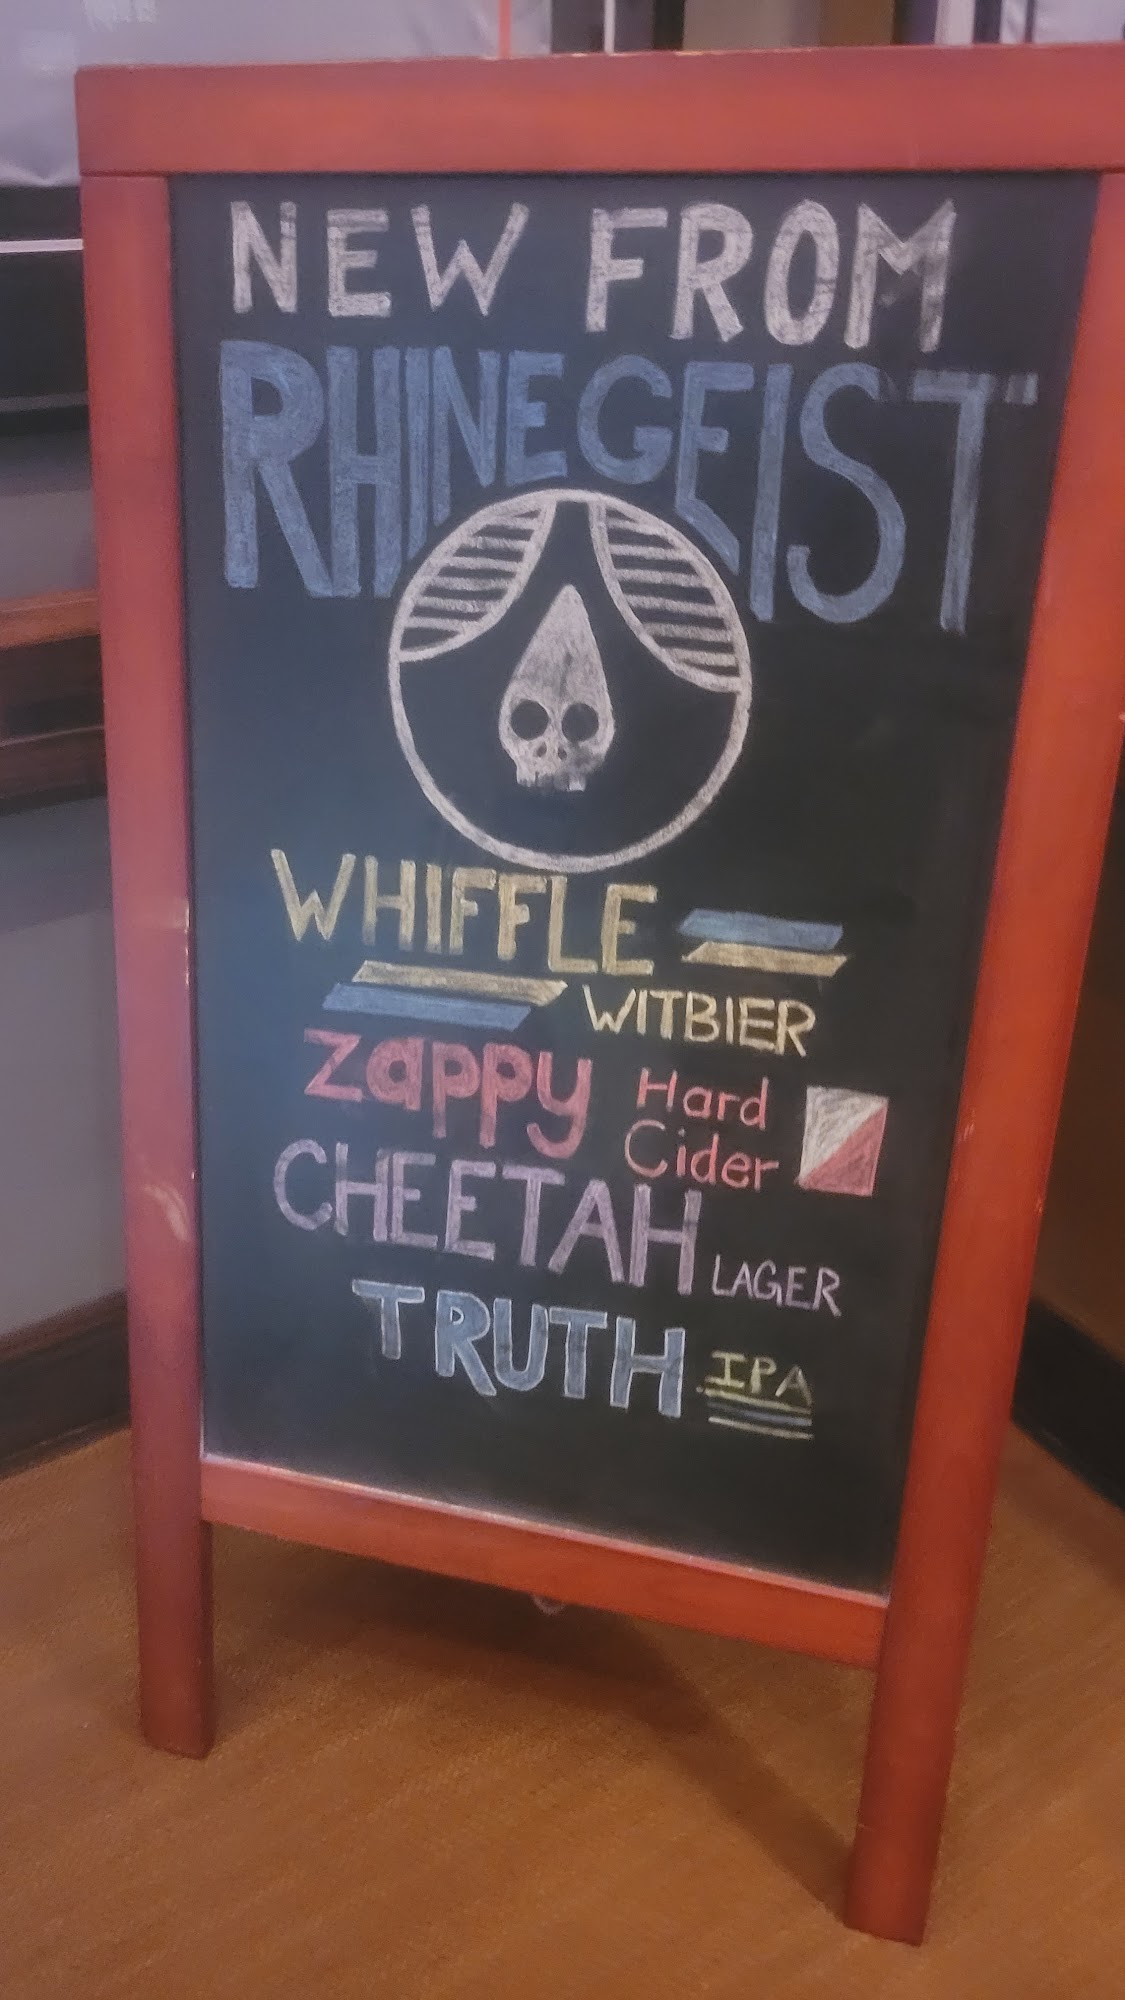 NEW FROM
RHINEGEIST
WHIFFLE
WITBIER
Zappy Hard
Cider
CHEETAH LAGER
TRUTH IPA